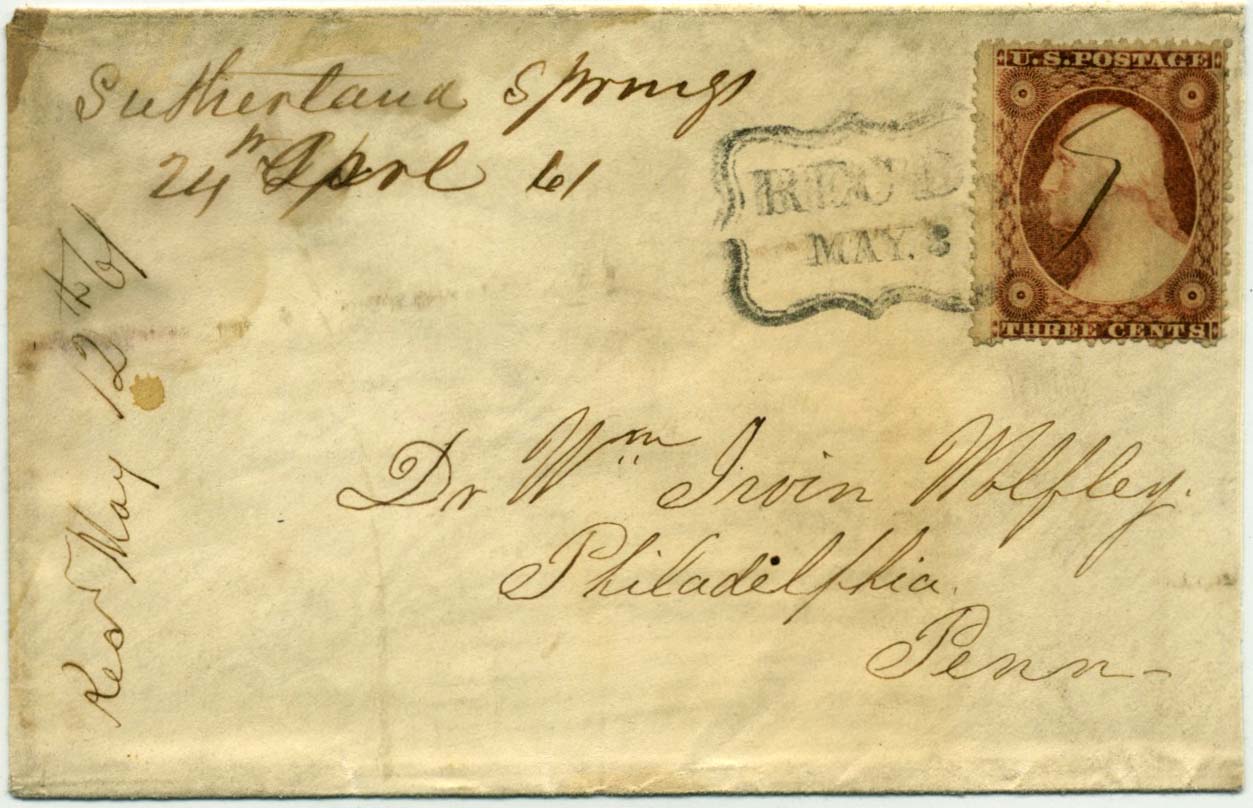 Sutherland Springs
24th Aprl 61
U.S. POSTAGE
THREE CENTS
REC'D
MAY. 8
Dr Wm Irvin Wolfley.
Philadelphia.
Penn
Recd May 12th 61